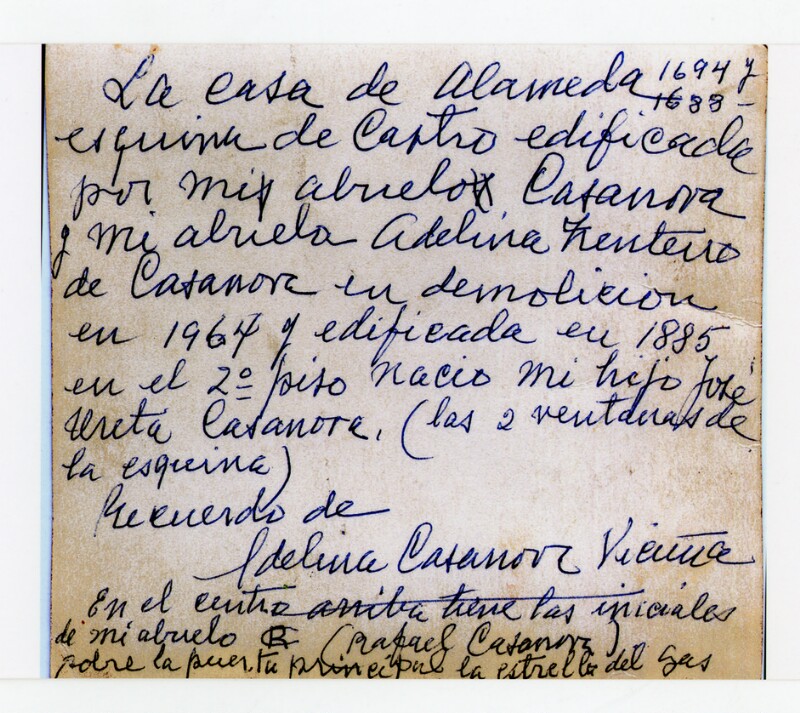 La casa de Alameda 1694 y
1688 -
esquina de Castro edificada
por mi abuelo Casanova
y mi abuela Adelina Zenteno
de Casanova en demolicion
en 1964 y edificada en 1885
en el 2º piso nacio mi hijo José
Ureta Casanova. (las 2 ventanas de
la esquina)
Recuerdo de
Adelina Casanova Vicuña
En el centro arriba tiene las iniciales
de mi abuelo (Rafael Casanova)
sobre la puerta principal la estrella del gas